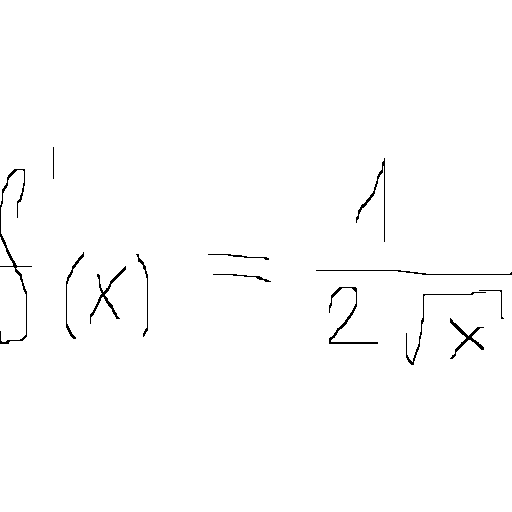 f'(x) = \frac{1}{2\sqrt{x}}